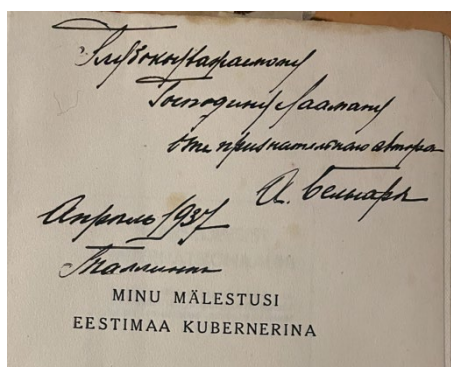 Глубокоуважаемому
Господину Лааману
отъ признательнаго автора
А. Бельгардъ
Апрѣль 1937
Таллиннъ
MINU MÄLESTUSI
EESTIMAA KUBERNERINA